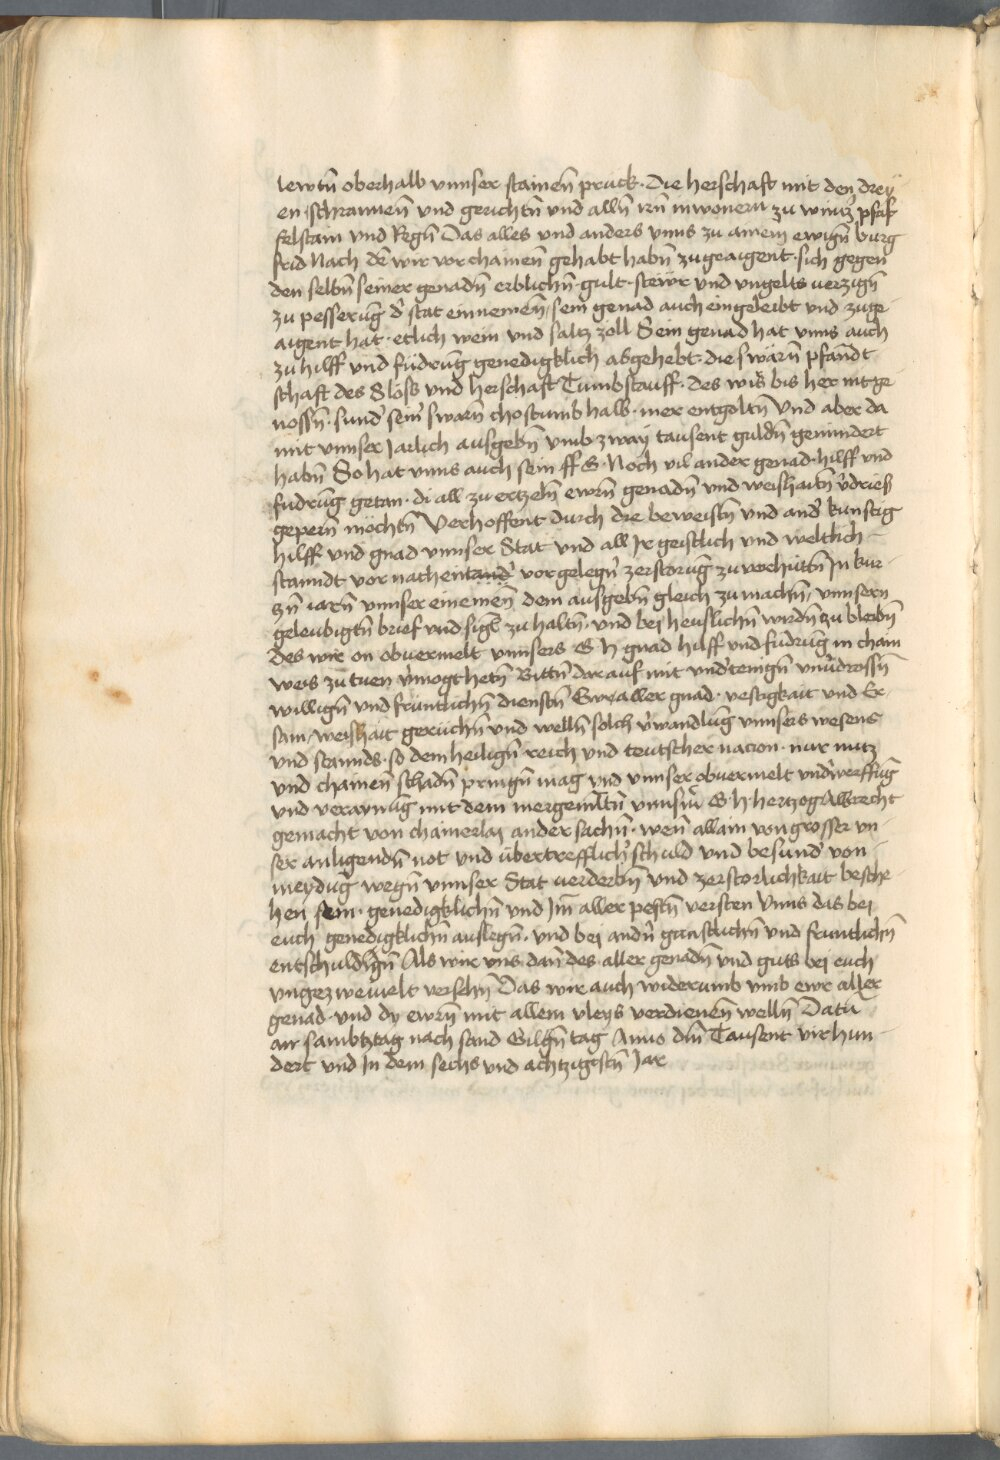 lewtn̄ oberhalb vnnser stainen̄ pruck. Die herschaft mit den drey¬
en schrannen̄ und gerichtn̄ und alln̄ irn̄ inwonern zu wintz̾ pfaf
felstain vnd Regn̄ Das alles vnd anders vnns zu ainem ewign̄ burg
frid Nach dē wir vor chainen̄ gehabt habn̄ zugeaigent. sich gegen
den selbn̄ seiner genadn̄ erblichn̄ gult. stewr vnd vngelts verzign̄
zu pesserūg d̾ stat einnemen̄, sein genad auch eingeleibt vnd zuge¬
aigent hat. etlich wein vnd saltz zoll Sein genad hat vnns auch
zu hilff vnd füdrūg genedigklich abgehebt. die swärn̄ pfandt
schaft des Sloss vnd herschaft Tumbstauff. des wir bis her nit ge¬
nossn̄. sund̾ sein̾ swarn̄ chostumb halb. mer entgoltn̄ Vnd aber da
mit vnnser Jarlich ausgebn̄ vmb zway tausent guldn̄ gemindert
habn̄ So hat vnns auch sein ff G. Noch vil ander genad. hilff vnd
fudrūg getan. di all zu ertzeln̄ ewrn̄ genadn̄ vnd weishaitn̄ v̾dries
gepern̄ möchtn̄ Verhoffent durch die beweistn̄ vnd and̾ kunftig
hilff vnd gnad vnnser Stat vnd all Jr geistlich vnd weltlich¬
stanndt vor nachent vorgelegn̾ zerstorūg zuverhuttn̄ Jn kur¬
tzn̄ iarn̄ vnnser einemen̄ dem ausgebn̄ gleich zu machn̄, vnnsern
geleubigtn̄ brief vnd sigl̄ zu haltn̄. vnd bej heuslichn̄ wirdn̄ zu bleibn̄
Des wir on obuermelt vnnsers G H gnad hilff vnd fudrūg in chain
weis zu tuen v̾mogt hetn̄ Bittn̄ darauf mit vnd̾tenign̄ vnūdrossn̄
willign̄ vnd früntlichn̄ dienstn̄ Ewr aller gnad. vestigkait vnd Er¬
sam, weishait geruchn̄ vnd welln̄ solch v̾wandlūg vnnsers wesens
vnd stannds. so dem heilign̄ reich vnd teutscher nacion. nur nutz
vnd chainen̄ schadn̄ pringn̄ mag vnd vnnser obuermelt vnd̾werffūg
vnd veraynūg mit dem mergemltn̄ vnnsm̄ G. H. hertzog Albrecht
gemacht von chainerlaj ander sachn̄. wen̄ allain von grosser vn¬
ser anligendn̄ not vnd übertrefflich̾ schuld vnd besund̾ von¬
meydūg wegn̄ vnnser Stat verderbn̄ vnd zerstorlichkait besche¬
hen sein. genedigklichn̄ vnd Jm̄ aller pestn̄ versten Vnns das bej
euch genedigklichn̄ auslegn̄. vnd bej andn̾ gunstlichn̄ vnd fruntlichn̄
entschuldign̄ Als wir vns dan̄ des aller genadn̄ vnd guts bej euch
vngezweiuelt versehn̄ Das wir auch widerumb vmb ewr aller
genad. vnd dy ewrn̄ mit allem vleys verdienen̄ welln̄ Datū
am sambtztag nach sand Gilgn̄ tag Anno dn̄i Tausent vir hun¬
dert vnd Jn dem sechs vnd achtzigstn̄ Jar